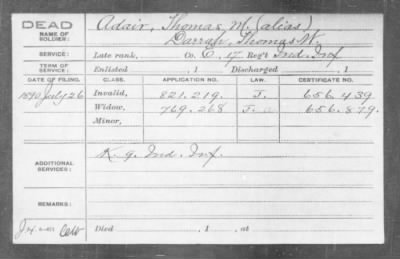 DEAD
NAME OF SOLDIER: Adair, Thomas M. (alias)
Darrah, Thomas W.
SERVICE: Late rank, Co. C, 17 Reg't Ind. Inf.
TERM OF SERVICE: Enlisted , 1 Discharged , 1
DATE OF FILING. CLASS. APPLICATION NO. LAW. CERTIFICATE NO.
1890 July 26 Invalid, 821.219. J. 656.439.
Widow, 769.268 J. 656.879.
Minor,
ADDITIONAL SERVICES: K. 9. Ind. Inf.
REMARKS:
Died , 1 , at